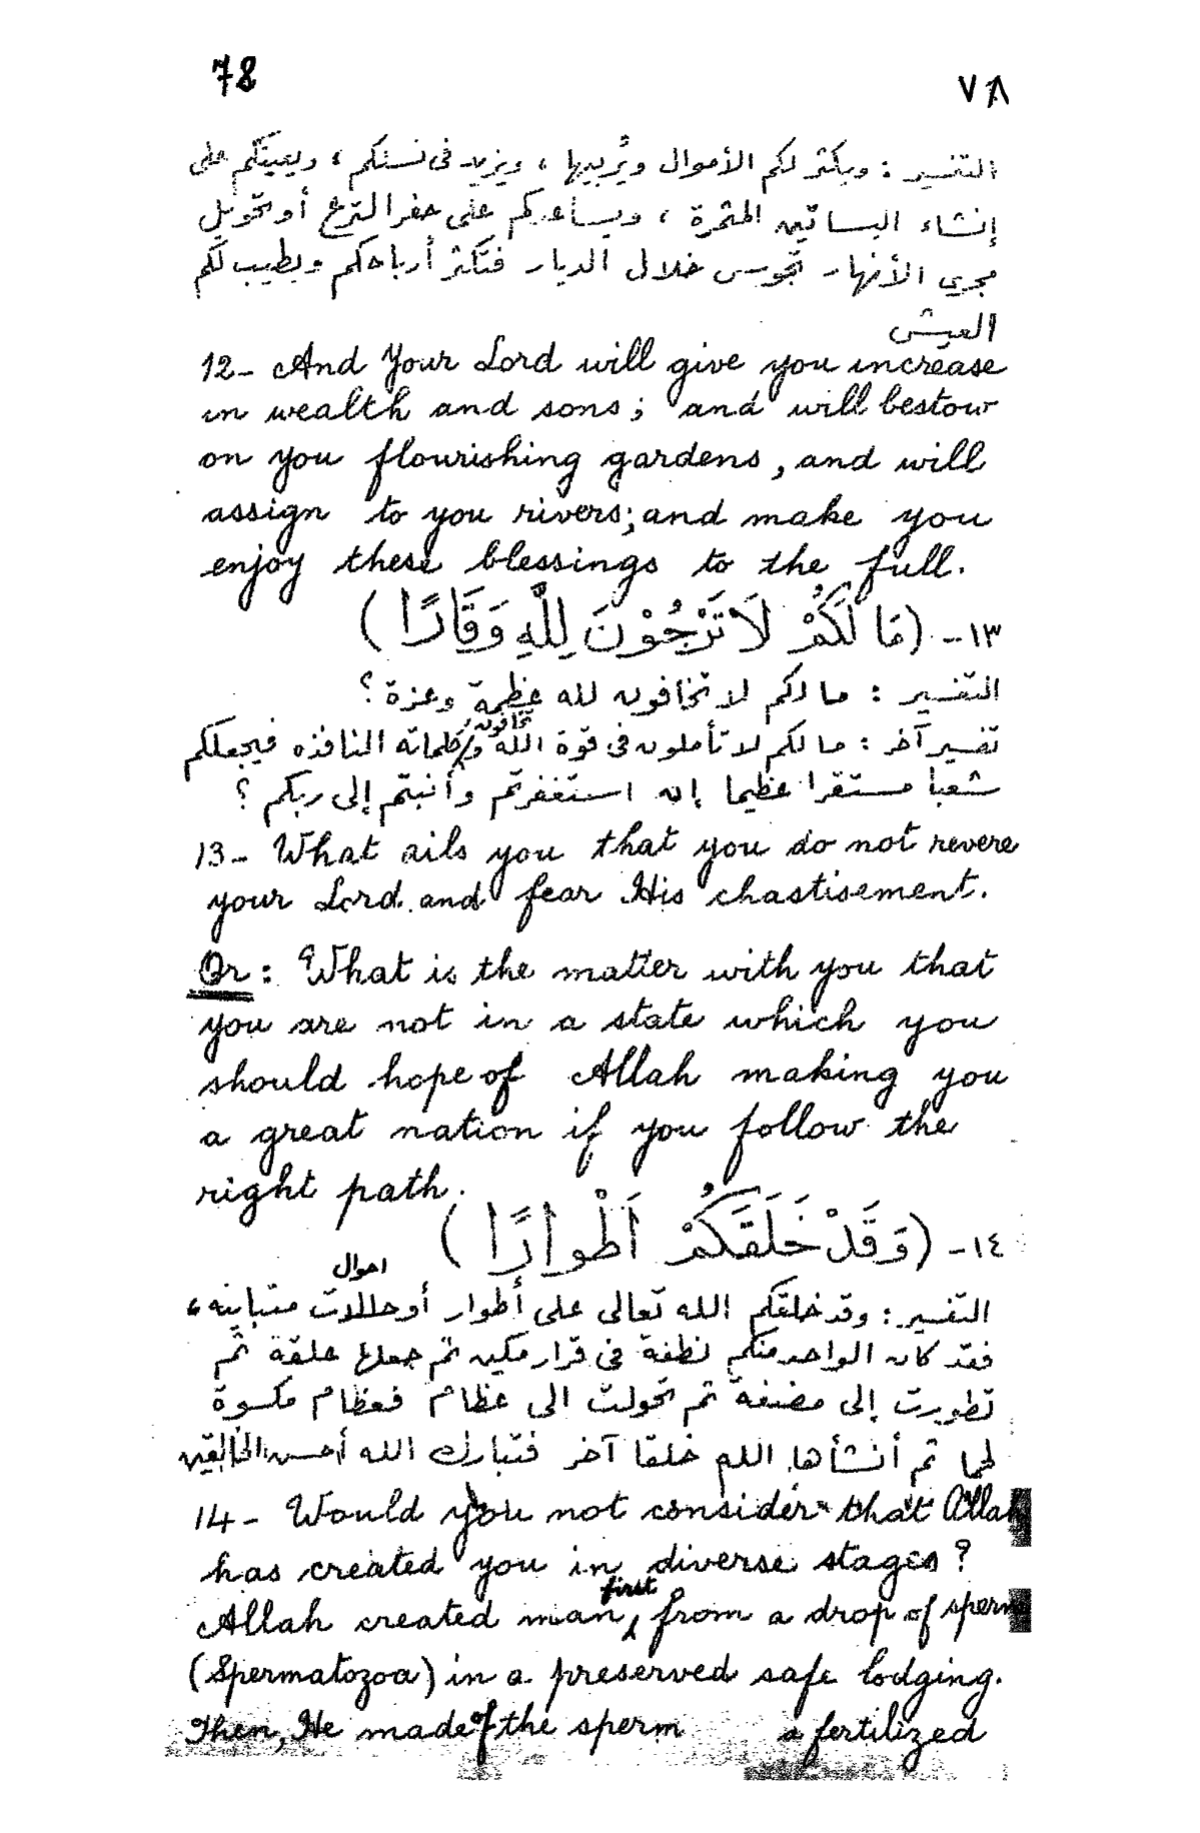 78
٧٨
التفسير : ويكثر لكم الأموال ويُربيها ، ويزيد فى نسلكم ، ويعينكم على
إنشاء البساتين المثمرة ، ويساعدكم على حفر الترع أو تحويل
مجرى الأنهار تجوس خلال الديار فتكثر أرباحكم ويطيب لكم
العيش
12- And Your Lord will give you increase
in wealth and sons; and will bestow
on you flourishing gardens, and will
assign to you rivers; and make you
enjoy these blessings to the full.
١٣- (مَا لَكُمْ لَا تَرْجُوْنَ لِلَّهِ وَقَارًا)
التفسير : ما لكم لا تخافون لله عظمة وعزة ؟
تفسير آخر : ما لكم لا تأملون فى قوة الله وتخافون كلماته النافذه فيجعلكم
شعبا مستقرا عظيما إن استغفرتم وأنبتم إلى ربكم ؟
13- What ails you that you do not revere
your Lord and fear His chastisement.
Or: What is the matter with you that
you are not in a state which you
should hope of Allah making you
a great nation if you follow the
right path.
١٤- (وَقَدْ خَلَقَكُمْ أَطْوارًا)
احوال
التفسير : وقد خلقكم الله تعالى على أطوار أو حالات متباينه ،
فقد كان الواحد منكم نطفة فى قرار مكين ثم جعلها علقة ثم
تطورت إلى مضغة ثم تحولت الى عظام فعظام مكسوة
لحما ثم أنشأها الله خلقا آخر فتبارك الله أحسن الخالقين
14- Would you not consider that Allah
has created you in diverse stages?
Allah created man, first from a drop of sperm
(Spermatozoa) in a preserved safe lodging.
Then, He made of the sperm a fertilized